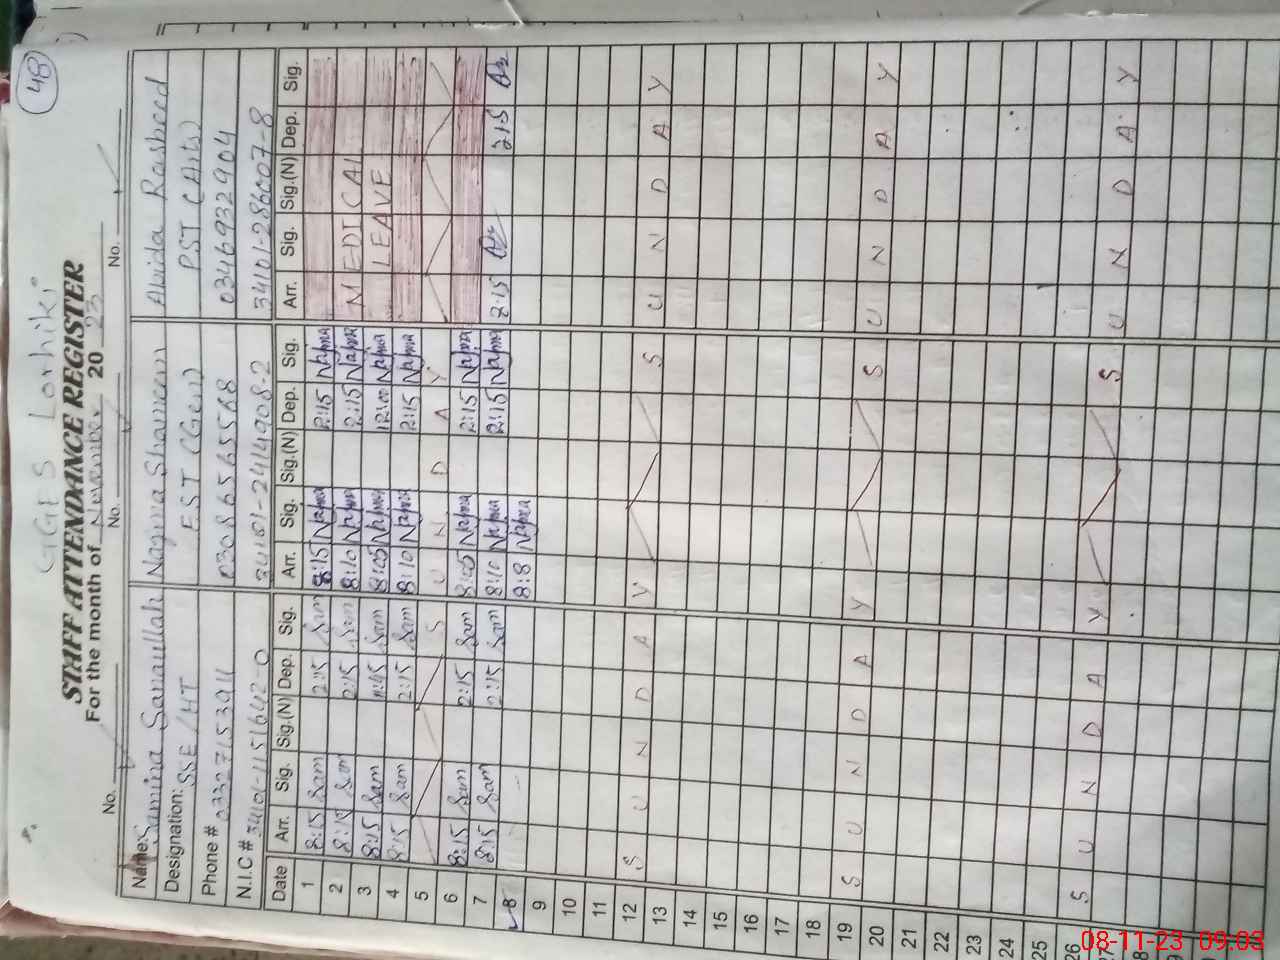 48
GGPS Lorhiki
STAFF ATTENDANCE REGISTER
For the month of November 20 23
No. No. No.
Name: Samina Sanaullah Nagina Shaheen Abida Rasheed
Designation: SSE/HT EST (Gen) PST (Arts)
Phone # 03086565568 03469322904
N.I.C # 34101-1151642-0 34101-2414908-2 34101-286007-8
Date Arr. Sig. Sig.(N) Dep. Sig. Arr. Sig. Sig.(N) Dep. Sig. Arr. Sig. Sig.(N) Dep. Sig.
1 8:15 Sam 2:15 Sam 8:15 Najma 2:15 Najma
2 8:15 Sam 2:15 Sam 8:10 Najma 2:15 Najma MEDICAL
3 8:15 Sam 11:45 Sam 8:05 Najma 12:00 Najma LEAVE
4 8:15 Sam 2:15 Sam 8:10 Najma 2:15 Najma
5 S U N D A Y
6 8:15 Sam 2:15 Sam 8:05 Najma 2:15 Najma
7 8:15 Sam 2:15 Sam 8:10 Najma 2:15 Najma 8:15 2:15
8 8:8 Najma
9
10
11
12 S U N D A Y S U N D A Y
13
14
15
16
17
18
19 S U N D A Y S U N D A Y
20
21
22
23
24
25
26 S U N D A Y S U N D A Y
08-11-23 09:03